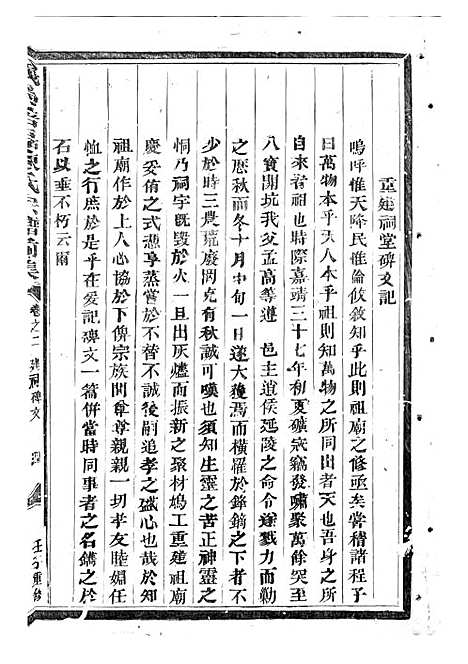 重建祠堂碑文記
嗚呼惟天降民推倫攸敘知乎此則祖廟之修亟矣嘗稽諸程子
曰萬物本乎天人本乎祖則知萬物之所同出者天也吾身之所
自來者祖也時際嘉靖三十七年有夏礦寇竊發嘯聚萬餘突至
八寳開坑我父孟高等遵 邑主道侯延陵之命令遂戮力而勦
之歷秋而冬十月中旬一日遂大獲焉而橫羅於鋒鏑之下者不
少於時三農荒廢罔克有秋誠可嘆也須知生靈之苦正神靈之
恫乃祠宇既毀於火一旦出灰燼而振新之聚材鳩工重建祖廟
慶妥侑之式憑享蒸嘗於不替不誠後嗣追孝之盛心也哉於知
祖廟作於上人心協於下俾宗族間尊尊親親一切孝友睦婣任
恤之行庶於是乎在爰記碑文一篇併當時同事者之名鐫之於
石以垂不朽云爾
卷之二 建祠碑文 四